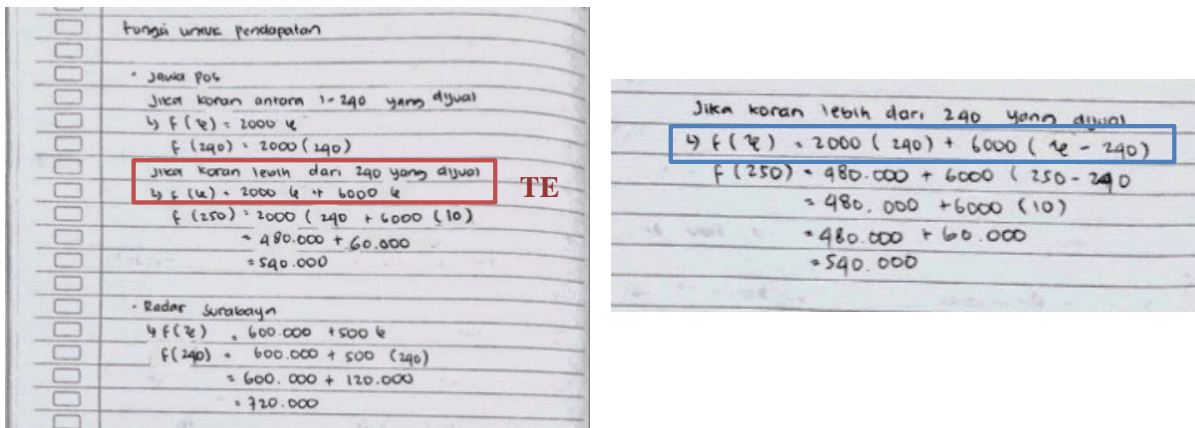 Fungsi untuk pendapatan
• Jawa pos
Jika koran antara 1-240 yang dijual
↳ f(x) = 2000 x
f (240) = 2000 (240)
Jika koran lebih dari 240 yang dijual
↳ f (x) = 2000 x + 6000 x
TE
f (250) = 2000 ( 240 + 6000 (10)
= 480.000 + 60.000
= 540.000
• Radar Surabaya
↳ f(x) = 600.000 + 500 x
f(240) = 600.000 + 500 (240)
= 600.000 + 120.000
= 720.000
Jika koran lebih dari 240 yang dijual
↳ f(x) = 2000 (240) + 6000 (x - 240)
f (250) = 480.000 + 6000 (250 - 240
= 480.000 + 6000 (10)
= 480.000 + 60.000
= 540.000